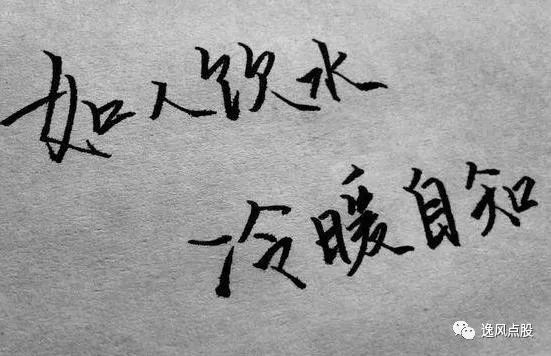 如人饮水
冷暖自知
逸风点股